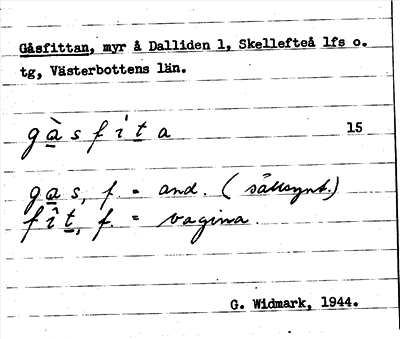 Gåsfittan, myr å Dalliden 1, Skellefteå lfs o.
tg, Västerbottens län.
gàsfìta 15
gas, f. = and. (sällsynt.)
fît, f. = vagina.
G. Widmark, 1944.